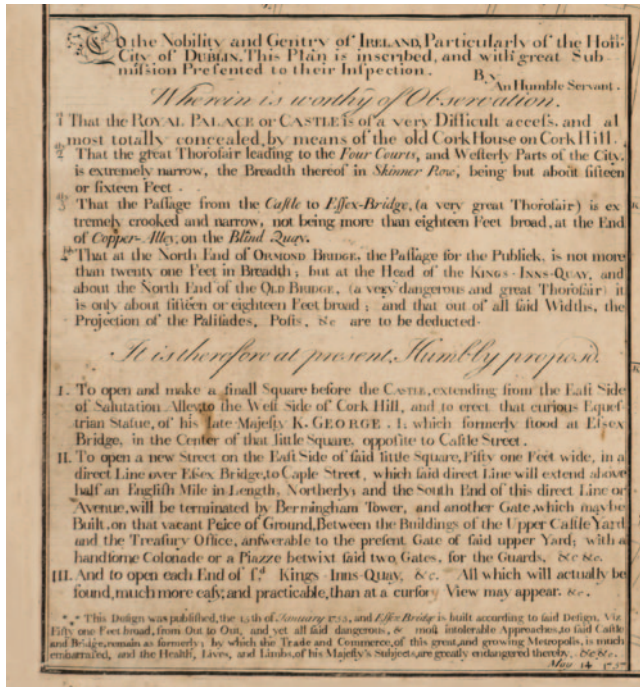 To the Nobility and Gentry of IRELAND, Particularly of the Hon.ble
City of DUBLIN, This Plan is inscribed, and with great Sub-
mission Presented to their Inspection. By
An Humble Servant.
Wherein is worthy of Observation.
1 That the ROYAL PALACE or CASTLE is of a very Difficult access, and al
most totally concealed, by means of the old Cork House on Cork Hill.
2 That the great Thorofair leading to the Four Courts, and Westerly Parts of the City,
is extremely narrow, the Breadth thereof in Skinner Row, being but about fifteen
or sixteen Feet.
3 That the Passage from the Castle to Essex-Bridge, (a very great Thorofair) is ex
tremely crooked and narrow, not being more than eighteen Feet broad, at the End
of Copper-Alley, on the Blind Quay.
4 That at the North End of ORMOND BRIDGE, the Passage for the Publick, is not more
than twenty one Feet in Breadth; but at the Head of the KINGS-INNS-QUAY, and
about the North End of the OLD BRIDGE, (a very dangerous and great Thorofair) it
is only about fifteen or eighteen Feet broad; and that out of all said Widths, the
Projection of the Palisades, Posts, &c are to be deducted.
It is therefore at present, Humbly propos'd.
I. To open and make a small Square before the CASTLE, extending from the East Side
of Salutation Alley, to the West Side of Cork Hill, and to erect that curious Eques-
trian Statue, of his late Majesty K. GEORGE. I. which formerly stood at Essex
Bridge, in the Center of that little Square, opposite to Castle Street.
II. To open a new Street on the East Side of said little Square, Fifty one Feet wide, in a
direct Line over Essex Bridge, to Caple Street, which said direct Line will extend above
half an English Mile in Length, Northerly; and the South End of this direct Line or
Avenue, will be terminated by Bermingham Tower, and another Gate, which may be
Built, on that vacant Peice of Ground, Between the Buildings of the Upper Castle Yard
and the Treasury Office, answerable to the present Gate of said upper Yard; with a
handsome Colonade or a Piazze betwixt said two Gates, for the Guards, &c &c.
III. And to open each End of s.d Kings-Inns-Quay, &c. All which will actually be
found, much more easy, and practicable, than at a cursory View may appear. &c.
*** This Design was published, the 15th of January 1753, and Essex Bridge is built according to said Design, Viz
Fifty one Feet broad, from Out to Out, and yet all said dangerous, & most intolerable Approaches, to said Castle
and Bridge, remain as formerly; by which the Trade and Commerce, of this great, and growing Metropolis, is much
embarrased, and the Health, Lives, and Limbs, of his Majesty's Subjects, are greatly endangered thereby. &c &c.
May 14 1757